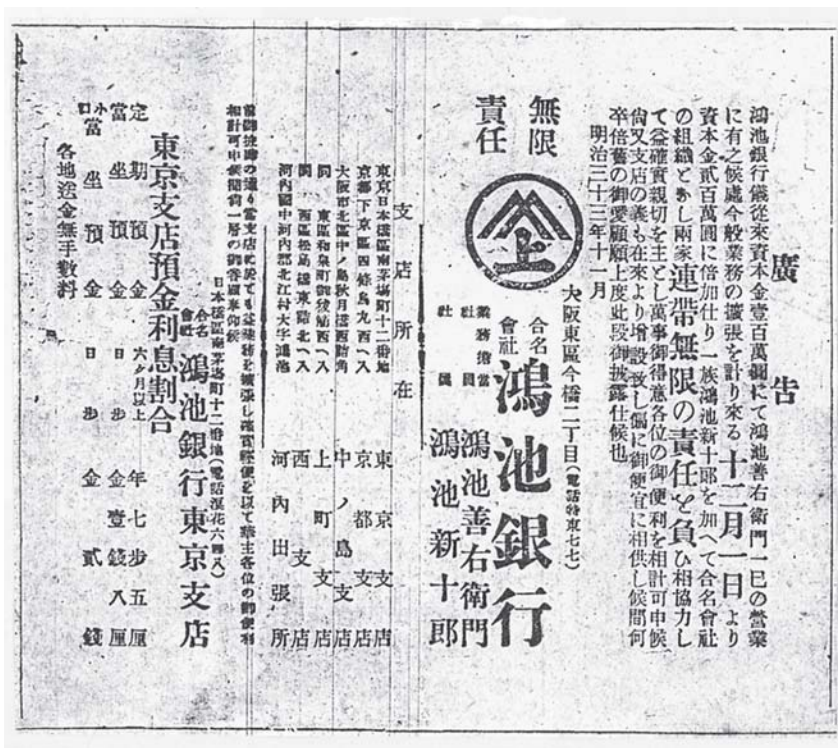 廣告
鴻池銀行儀從來資本金壹百萬圓にて鴻池善右衛門一已の營業
に有之候處今般業務の擴張を計り來る十二月一日より
資本金貳百萬圓に倍加仕り一族鴻池新十郎を加へて合名會社
の組織と為し兩家連帶無限の責任を負ひ相協力し
て益確實親切を主とし萬事御得意各位の御便利を相計可申候
尚又支店の義も在來より增設致し偏に御便宜に相供し候間何
卒倍舊の御愛顧願上度此段御披露仕候也
明治三十三年十一月
大阪東區今橋二丁目(電話特東七七)
無限責任
上
合名會社 鴻池銀行
業務擔當社員 鴻池善右衛門
社員 鴻池新十郎
支店所在
東京日本橋區南茅場町十二番地 東京支店
京都下京區四條烏丸西へ入 京都支店
大阪市北區中ノ島秋月橋西詰角 中ノ島支店
同 東區和泉町御祓筋西へ入 上町支店
同 西區松島橋東詰北へ入 西支店
河內國中河內郡北江村大字鴻池 河內出張所
前御披露の通り當支店に於ても益業務を擴張し確實輕便を以て華主各位の御便利
相計可申候間尚一層の御眷顧奉仰候
日本橋區南茅場町十二番地(電話浪花六四八)
合名會社 鴻池銀行東京支店
東京支店預金利息割合
定期預金 六ケ月以上 年七步五厘
當坐預金 日步 金壹錢八厘
小口當坐預金 日步 金貳錢
各地送金無手數料